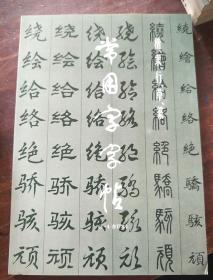 繞繪給絡絕驕駭頑
繞繪給絡絕驕駭頑
常用字字帖
绕绘给络绝骄骇顽
绕绘给络绝骄骇顽
绕绘给络绝骄骇顽
绕绘给络绝骄骇顽